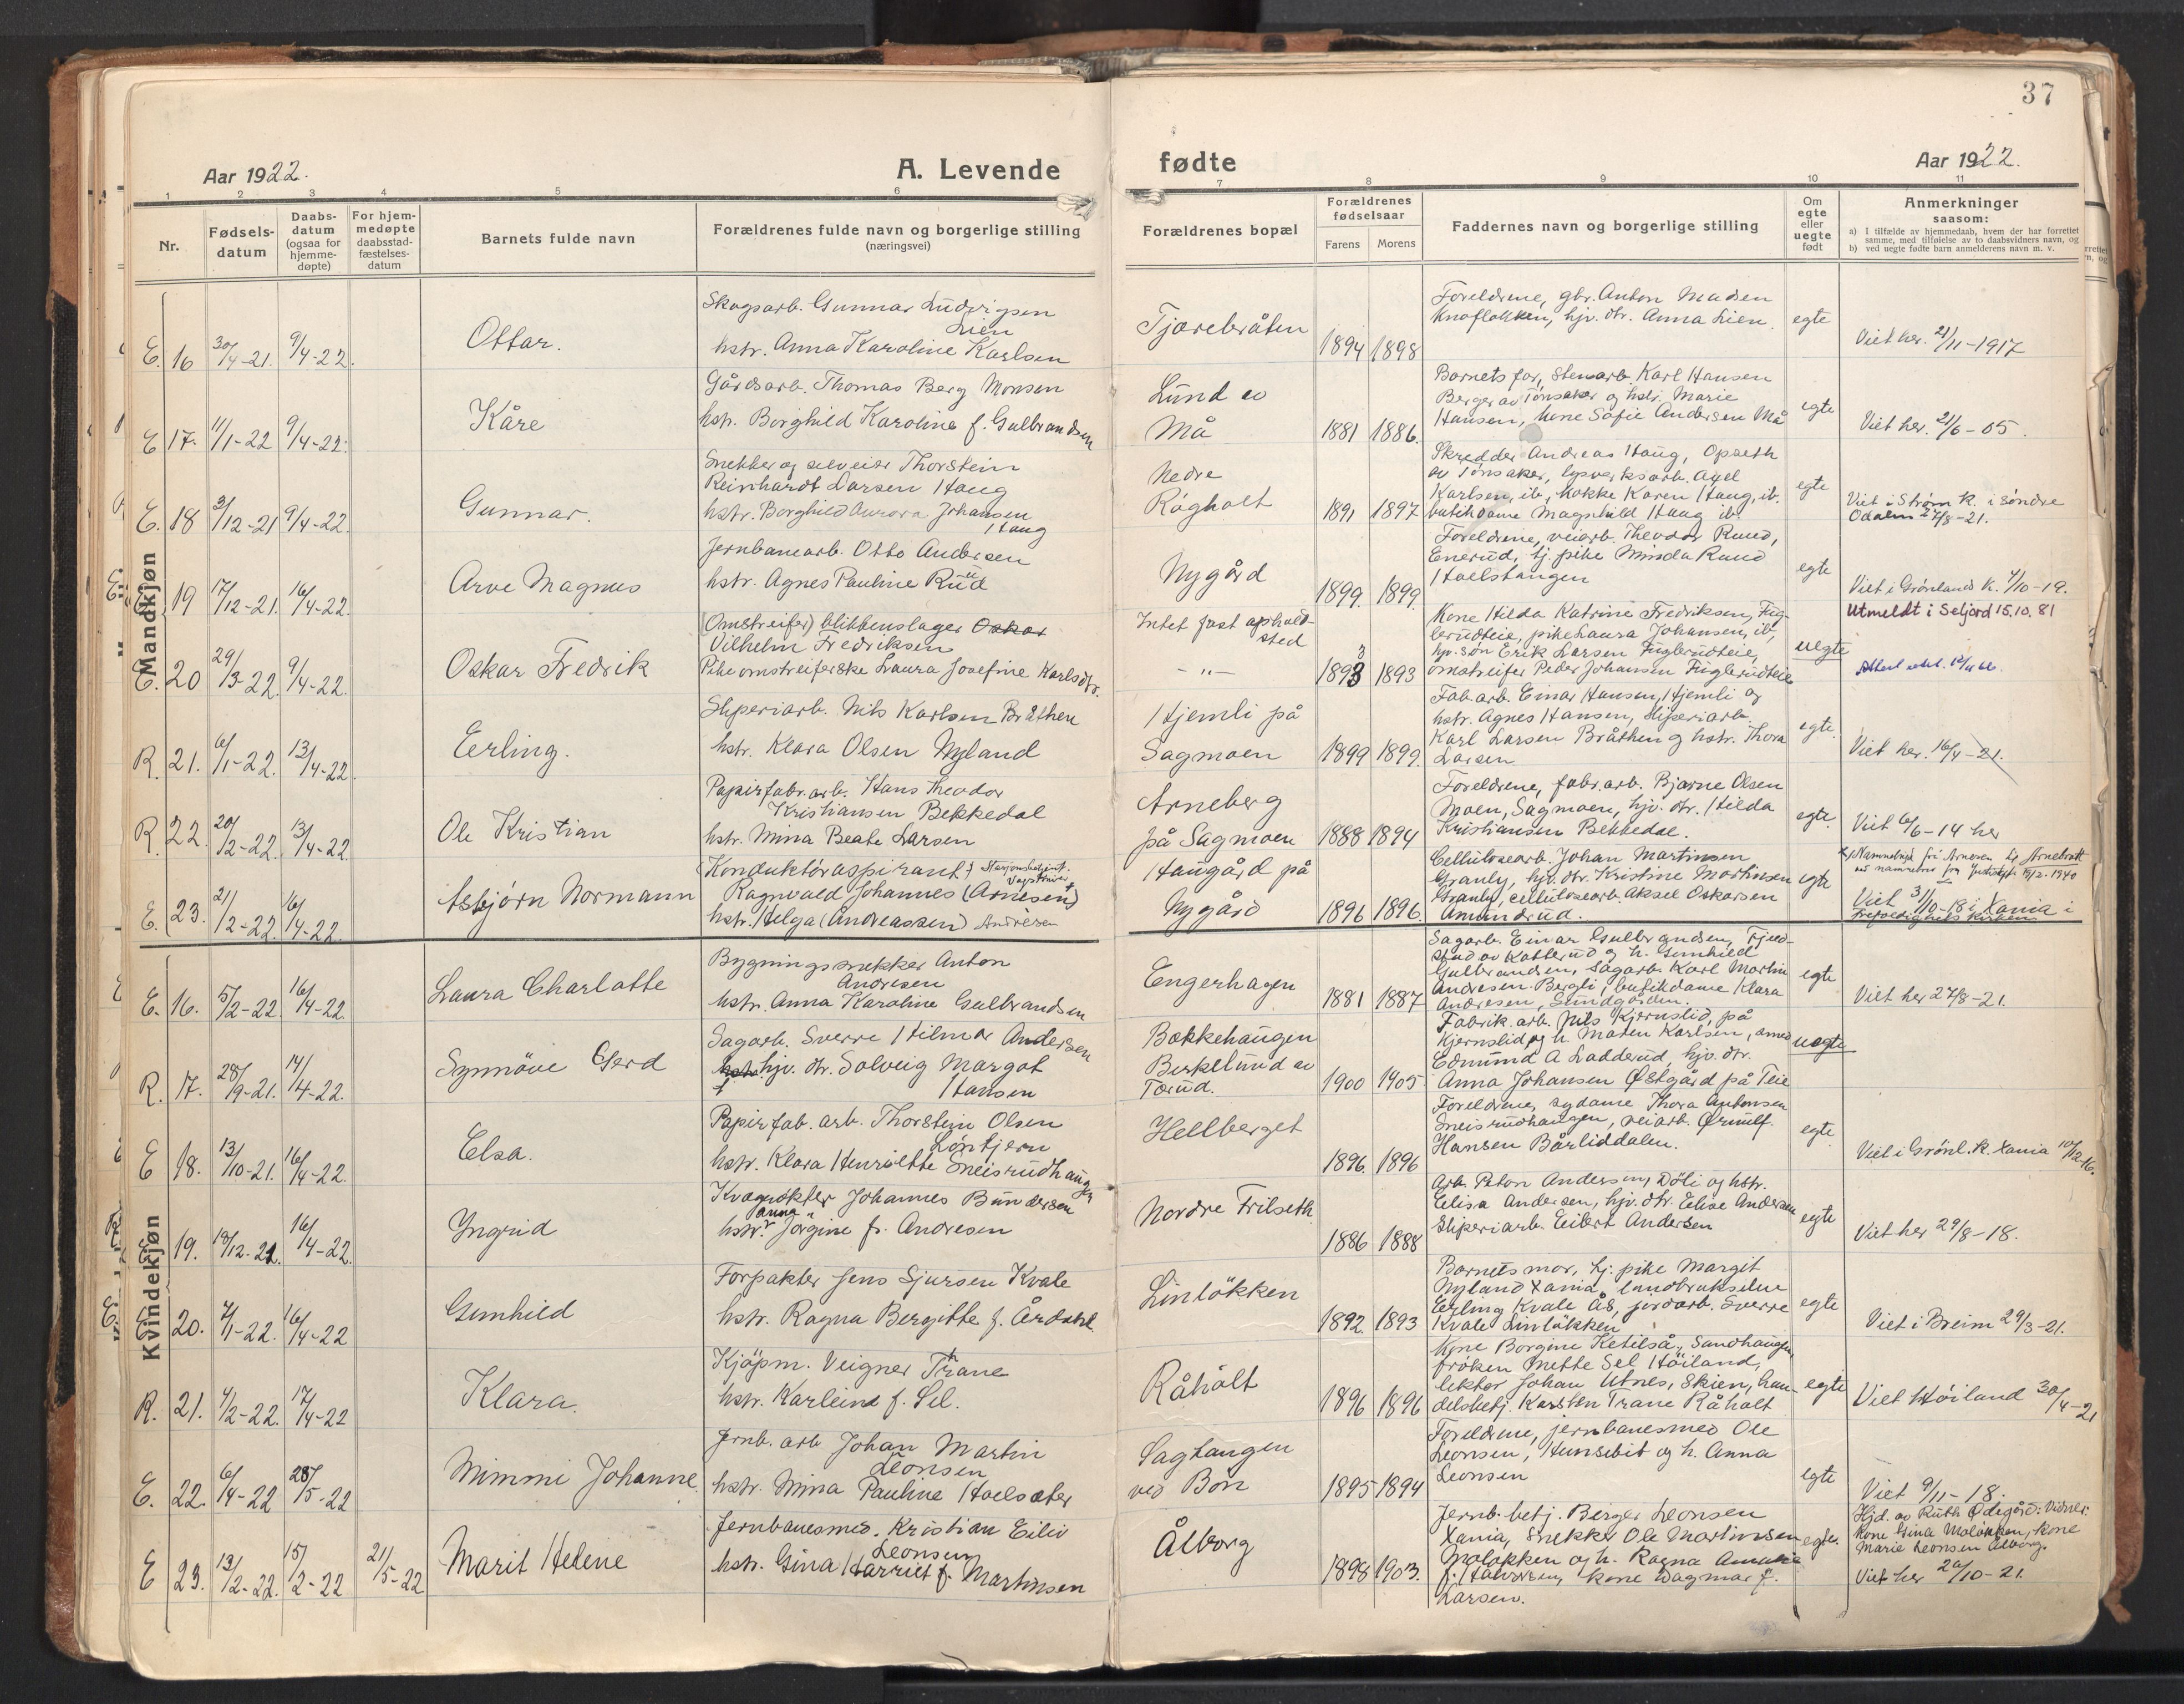 37
Aar 1922.
A. Levende
fødte
Aar 1922.
1 2 3 4 5 6 7 8 9 10 11
Nr.
Fødsels-
datum
Daabs-
datum
(ogsaa for
hjemme-
døpte)
For hjem-
medøpte
daabsstad-
fæstelses-
datum
Barnets fulde navn
Forældrenes fulde navn og borgerlige stilling
(næringsvei)
Forældrenes bopæl
Forældrenes
fødselsaar
Farens Morens
Faddernes navn og borgerlige stilling
Om
egte
eller
uegte
født
Anmerkninger
saasom:
a) I tilfælde av hjemmedaab, hvem der har forrettet
samme, med tilføielse av to daabsvidners navn, og
b) ved uegte fødte barn anmelderens navn m. v.
Mandkjøn
E. 16 30/4-21. 9/4-22.
Ottar.
Skogsarb. Gunnar Ludvigsen
Lien
hstr. Anna Karoline Karlsen
Tjærebråten
1894 1898
Foreldrene, gbr. Anton Madsen
Knoflokken, hjv. dtr. Anna Lien.
egte
Viet her. 21/11-1917
E 17. 11/1-22 9/4-22.
Kåre
Gårdsarb. Thomas Berg Monsen
hstr. Borghild Karoline f. Gulbrandsen
Lund av
Må
1881 1886.
Barnets far, stenarb. Karl Hansen
Berger av Tønsaker og hstr. Marie
Hansen, kone Sofie Andersen Må
egte
Viet her. 21/6-05.
E. 18 3/12-21 9/4-22.
Gunnar.
Snekker og selveier Thorstein
Reinhardt Larsen Haug
hstr. Borghild Aurora Johansen
Haug
Nedre
Rågholt
1891 1897
Skredder Andreas Haug, Opseth
av Tønsaker, lysverksarb. Axel
Karlsen, ib., kokke Karen Haug, ib.
butikdame Magnhild Haug ib.
egte
Viet i Strøm k. i søndre
Odalen 27/8-21.
19 17/12-21. 16/4-22.
Arve Magnus
Jernbanearb. Otto Andersen
hstr. Agnes Pauline Ruud
Nygård
1899. 1899.
Foreldrene, veiarb. Theodor Ruud,
Enerud, tj. pike Minda Ruud
Haelstangen
egte
Viet i Grønlands k. 4/10-19.
Utmeldt i Seljord 15.10.81
E. 20 29/3-22. 9/4-22.
Oskar Fredrik
(Omstreifer) blikkenslager Oskar
Vilhelm Fredriksen
Pike omstreiferske Laura Josefine Karlsdtr.
Intet fast ophold-
sted
-"-
1893 1893
Kone Hilda Katrine Fredriksen, Fug-
lerudteie, pike Laura Johansen, ib,
hjv. søn Erik Larsen Fuglerudteie,
omstreifer Peder Johansen Fuglerudteie
uegte
R. 21. 6/1-22. 13/4-22
Eerling.
Sliperiarb. Nils Karlsen Bråthen
hstr. Klara Olsen Nyland
Hjemli på
Sagmoen
1899 1899.
Fab. arb. Einar Hansen, Hjemli og
hstr. Agnes Hansen, sliperiarb.
Karl Larsen Bråthen og hstr. Thora
Larsen
egte.
Viet her. 16/4-21.
R. 22. 20/2-22. 13/4-22
Ole Kristian
Papirfabr. arb. Hans Theodor
Kristiansen Bekkedal
hstr. Mina Beate Larsen
Arneberg
på Sagmoen
1888 1894
Foreldrene, fabr. arb. Bjarne Olsen
Moen, Sagmoen, hjv. dtr. Hilda
Kristiansen Bekkedal.
egte.
Viet 6/6-14 her
E. 23. 21/2-22. 16/4-22.
Asbjørn Normann
(Konduktøraspirant)
Ragnvald Johannes (Arnesen)
hstr. Helga (Andreassen) Andresen
Haugård på
Nygård
1896 1896.
Cellulosearb. Johan Martinsen
Granly, hjv. dtr. Kristine Martinsen
Granly, cellulosearb. Aksel Oskarsen
Amundrud.
egte
x) Namnebrigde frå Arnesen til Arnebrott
Viet 31/10-18 i Xania i
Trefoldighets kirken
Kvindekjøn
E. 16. 5/2-22. 16/4-22.
Laura Charlotte
Bygningssnekker Anton
Andresen
hstr. Anna Karoline Gulbrandsen
Engerhagen
1881 1887
Sagarb. Einar Gulbrandsen, Fjeld-
stad av Katterud og h. Gunhild
Gulbrandsen, sagarb. Karl Martin
Andresen Bergli, butikdame Klara
Andresen, Lundgården.
egte
Viet her 27/8-21.
R. 17. 28/9-21. 14/4-22.
Synnöve Gerd
Sagarb. Sverre Hilmar Andersen
hstr. hjv. dtr. Solveig Margot
Hansen
Bækkehaugen
Birkelund av
Tærud.
1900 1905
Fabrik. arb. Nils Kjernslid, på
Kjernslid og h. Maten Karlsen, smed
Edmund A Ladderud, hjv. dtr.
Anna Johansen Østgård på Teie
uegte
E 18. 13/10-21. 16/4-22.
Elsa.
Papirfab. arb. Thorstein Olsen
Löntjern
hstr. Klara Henriette Sneisrudhaugen
Hellberget
1896. 1896
Foreldrene, sydame Thora Antonsen
Sneisrudhaugen, veiarb. Ørnulf
Hansen Bårliddalen.
egte
Viet i Grønl. k. Xania 10/12-16.
19. 19/12-21. 16/4-22.
Yngrid
Kvægrøkter Johannes Bundersen
hstr. Anna Jörgine f. Andresen
Nordre Frilseth
1886 1888
Arb. Peton Andersen, Döli og hstr.
Elisa Andersen, hjv. dtr. Elise Andersen
Sliperiarb. Eilert Andersen
egte
Viet her 29/8-18.
20. 4/1-22. 16/4-22
Gunhild
Forpakter Jens Sjursen Kvale
hstr. Ragna Bergitte f. Årdahl.
Linlökken
1892. 1893
Barnets mor, tj. pike Margit
Nyland Xania, landbrukselev
Erling Kvale Ås, jordarb. Sverre
Kvale Linlökken
egte
Viet i Breim 29/3-21.
R. 21. 4/2-22. 17/4-22
Klara.
Kjöpm. Veigner Trane
hstr. Karleine f. Sel.
Råholt
1896 1896
Kone Borgine Ketilså, Sandhaugen
fröken Mette Sel Höiland,
lektor Johan Utnes, Skien, han-
delsbetj. Karsten Trane Råholt
egte
Viet Höiland 30/4-21
E. 22. 6/4-22 28/5-22
Mimmi Johanne.
Jernb. arb. Johan Martin
Leonsen
hstr. Mina Pauline Haelsæter
Sagtangen
ved Bön
1895 1894
Foreldrene, jernbanesmed Ole
Leonsen, Hunsebit og h. Anna
Leonsen
egte
Viet 9/11-18.
E 23. 13/2-22. 15/2-22 21/5-22
Marit Helene
Jernbanesmed. Kristian Eiliv
Leonsen
hstr. Gina Harriet f. Martinsen
Ålborg
1898 1903.
Jernb. betj. Birger Leonsen
Xania, snekker Ole Martinsen
Moløkken og h. Ragna Amalie
f. Halvorsen, kone Dagmar f.
Larsen.
egte.
Hjd. av Ruth Ødegård: Vidner:
kone Gina Moløkken, kone
Marie Leonsen Ålborg.
Viet her 20/10-21.